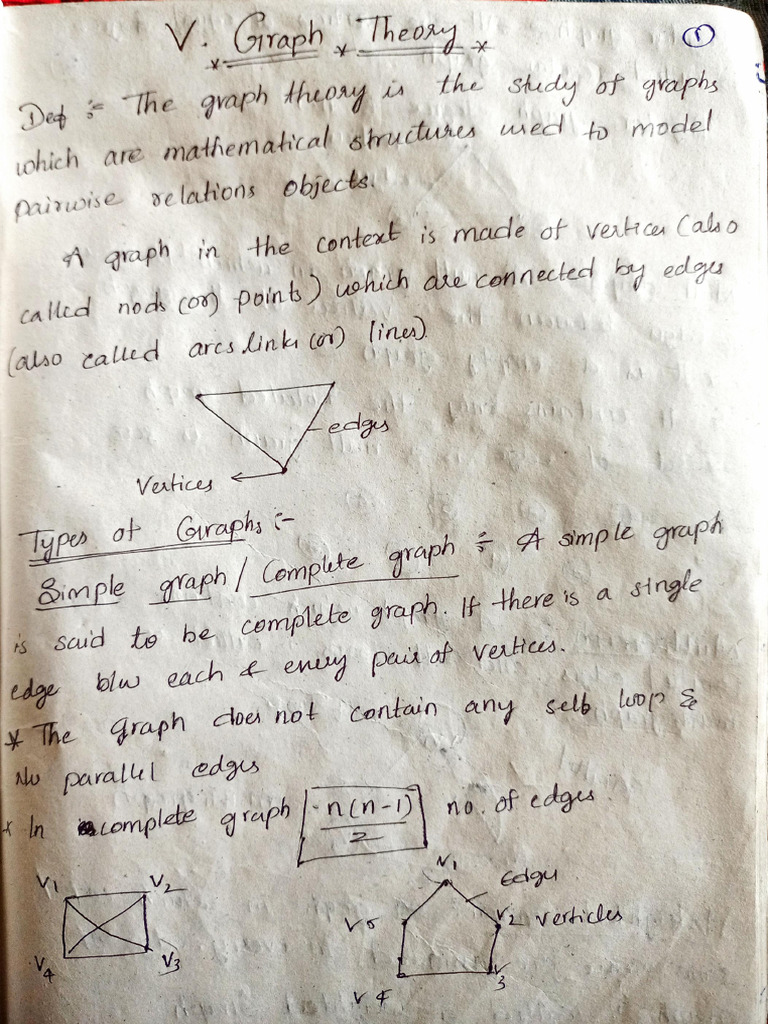 V. Graph Theory
1
Def :- The graph theory is the study of graphs
which are mathematical structures used to model
pairwise relations objects.
A graph in the context is made of vertices (also
called nods (or) points) which are connected by edges
(also called arcs links (or) lines)
edges
Vertices
Types of Graphs :-
Simple graph / Complete graph :- A simple graph
is said to be complete graph. If there is a single
edge b/w each & every pair of vertices.
* The graph does not contain any self loop &
No parallel edges
* In complete graph n(n-1)/2 no. of edges.
V1 V2
V4 V3
V1 Edges
V5 V2 verticles
V4 V3